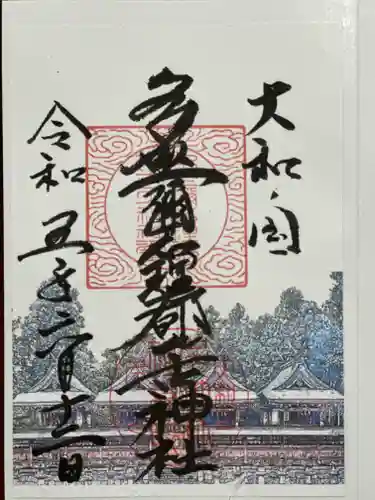 大和ノ国
多坐彌志理都比古神社
令和五年二月十二日